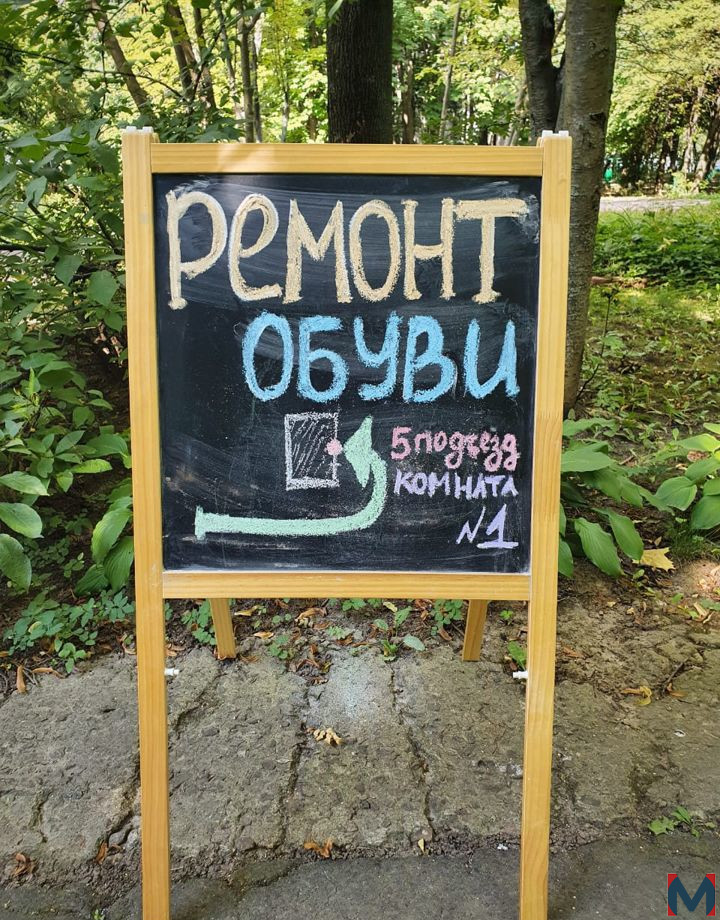 РЕМОНТ
ОБУВИ
5 подъезд
КОМНАТА
N1
M